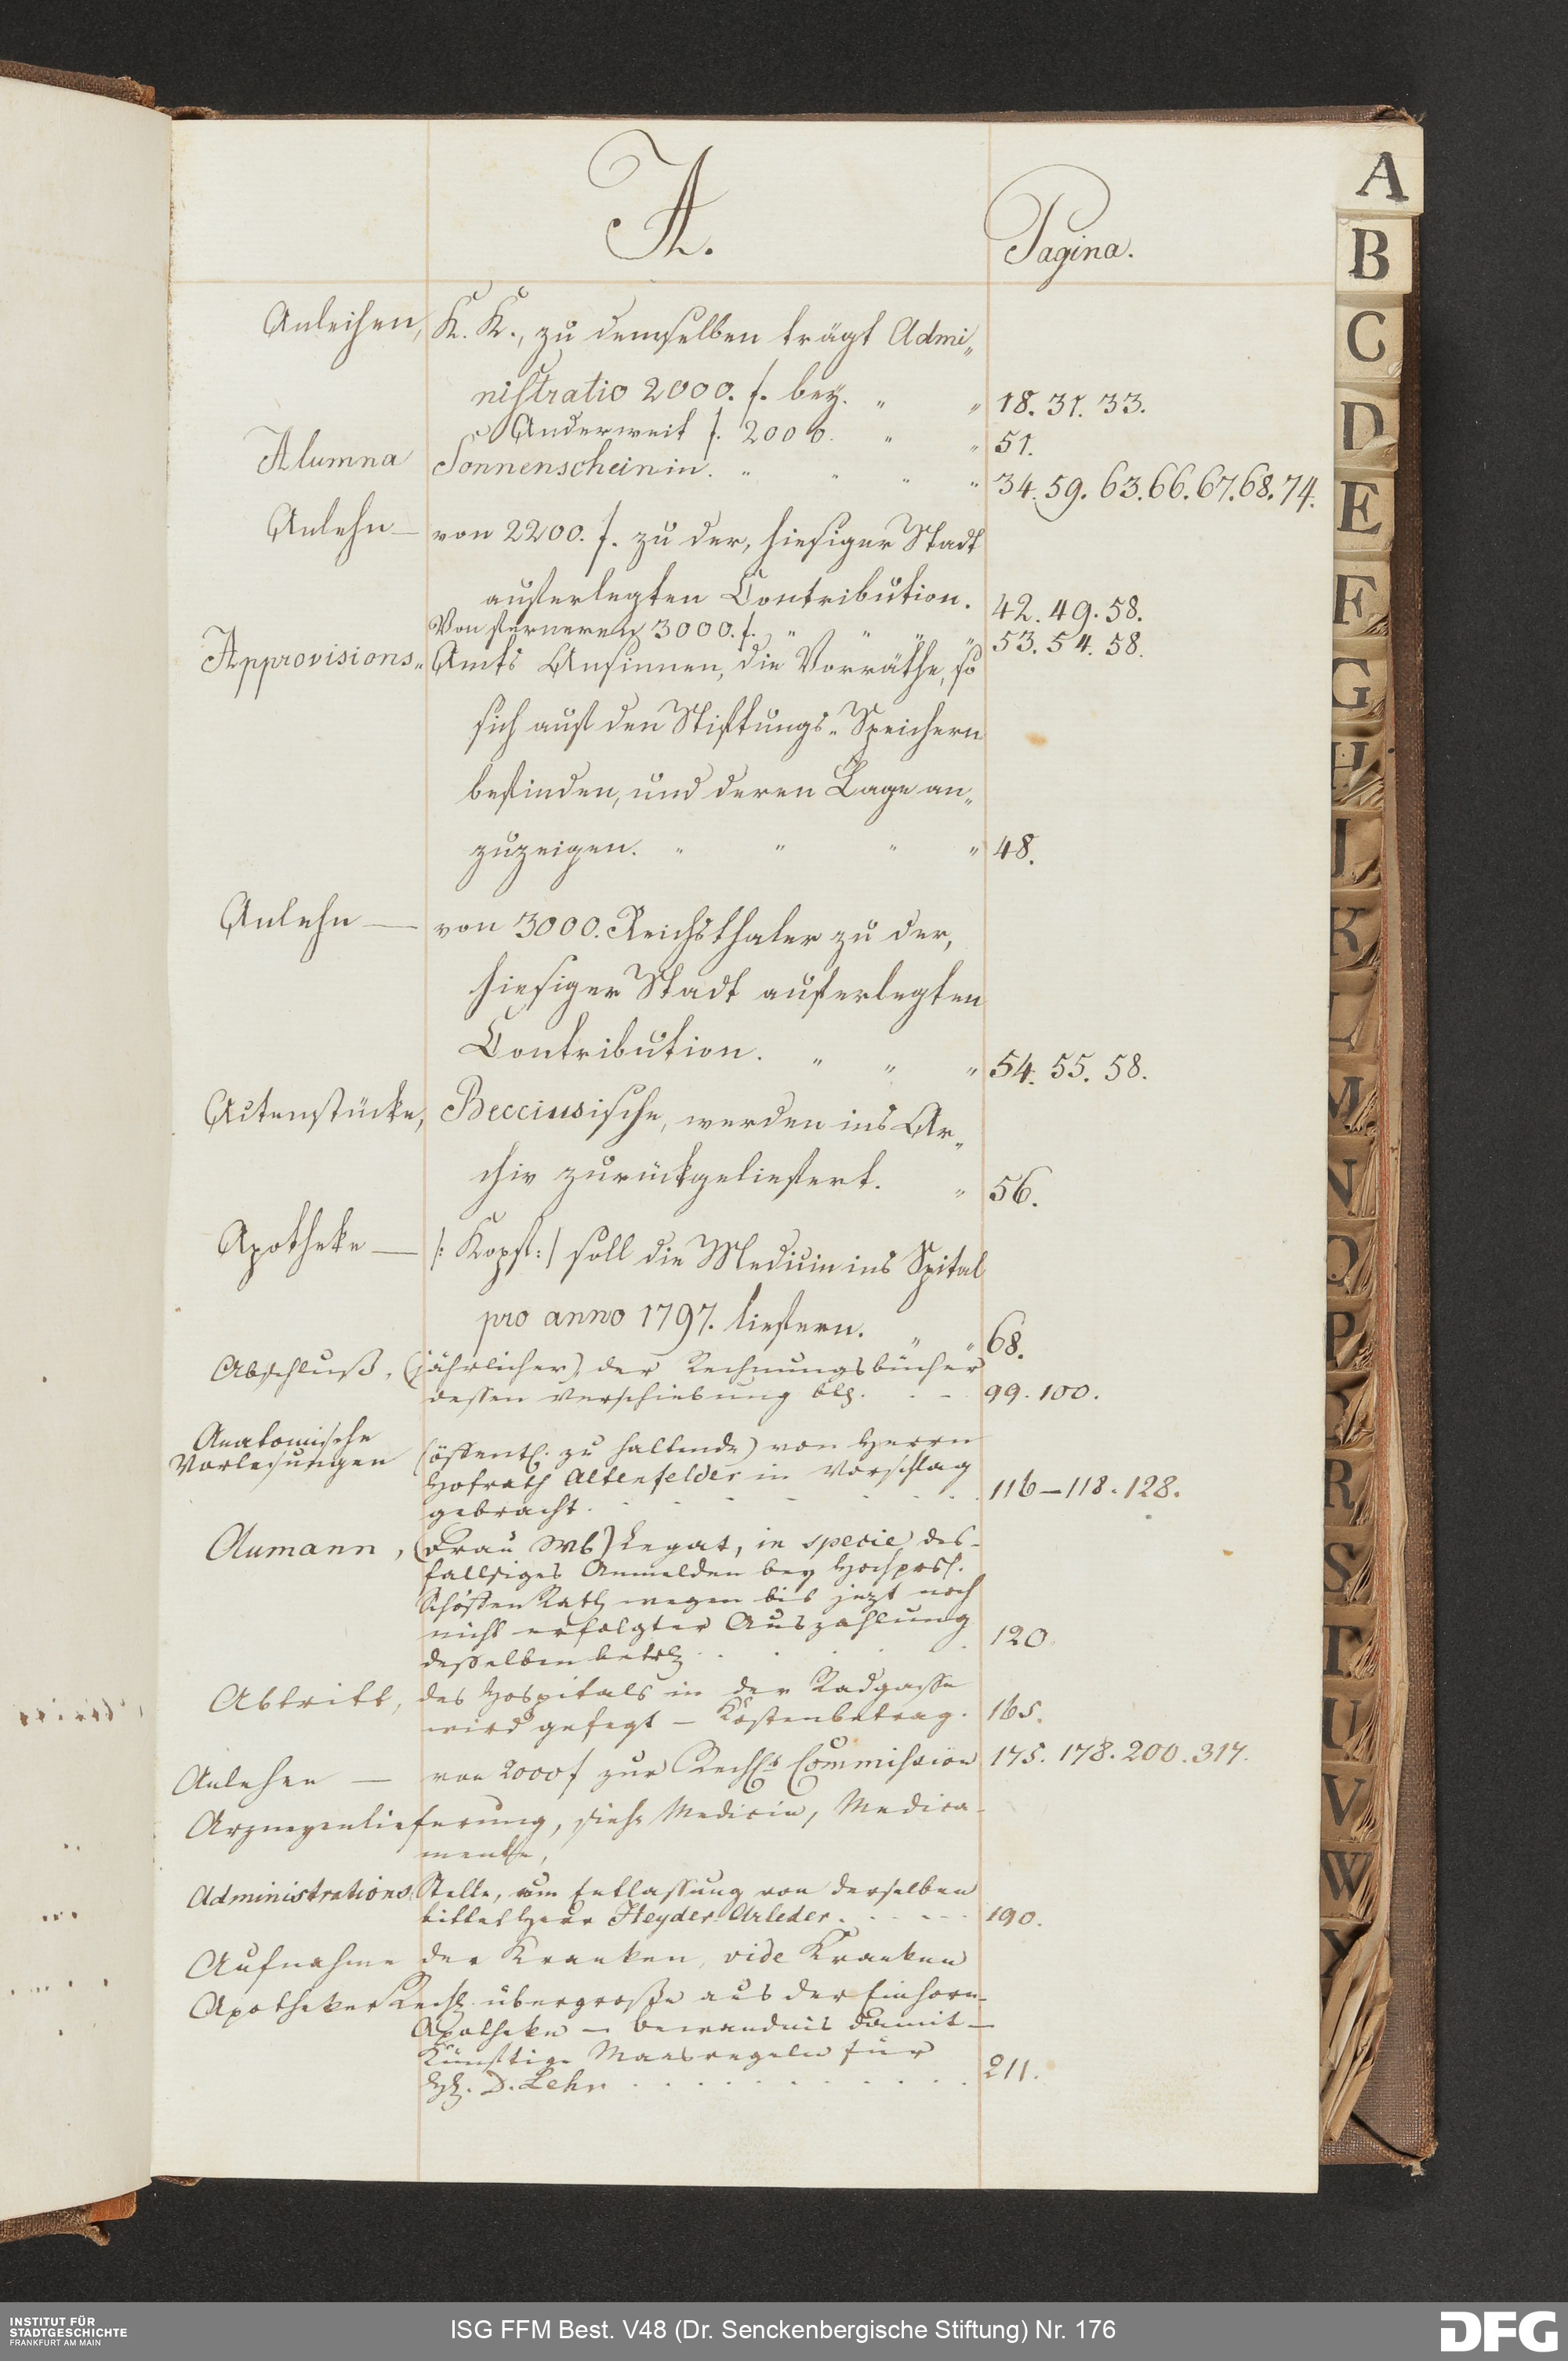 A.
Pagina.
Anleihen, K. K., zu demselben trägt Admi„
nistratio 2000. f. bey. „ „ 18. 31. 33.
Anderweit f. 2000. „ „ 51.
Alumna Sonnenscheinin. „ „ „ „ 34. 59. 63. 66. 67. 68. 74.
Anlehn — von 2200. f. zu der, hiesiger Stadt
auferlegten Contribution. 42. 49. 58.
Von ferneren 3000. f. „ „ „ „ 53. 54. 58.
Approvisions„ Amts Ansinnen, die Vorräthe, so
sich auf den Stiftungs„ Speichern
befinden, und deren Lage an„
zuzeigen. „ „ „ „ 48.
Anlehn — von 3000. Reichsthaler zu der,
hiesiger Stadt auferlegten
Contribution. „ „ „ 54. 55. 58.
Actenstücke, Becciusische, werden ins Ar„
chiv zurückgeliefert. „ 56.
Apotheke — /: Kopf :/ soll die Medicin ins Spital
pro anno 1797. liefern. „ „ 68.
Abschluß, (jährlicher) der Rechnungsbücher
dessen Verschiebung btr. . . - 99. 100.
Anatomische
Vorlesungen (öffentl. zu haltende) von Herrn
Hofrath Altenfelder in Vorschlag
gebracht. 116 — 118. 128.
Aumann, (Frau Wb) Legat, in specie des-
fallsiges Anmelden bey Hochpreisl.
Schöffen Rath wegen bis jezt noch
nicht erfolgter Auszahlung
desselben betr. 120.
Abtritt, des Hospitals in der Radgasse
wird gefegt — Kostenbetrag. 165.
Anlehen — von 2000 f zur Commission 175. 178. 200. 317.
Arzneyenlieferung, siehe Medicin, Medica-
mente,
Administrations Stelle, um Entlassung von derselben
bittet Herr Heyder-Arleder. 190.
Aufnahme der Kranken, vide Kranken
Apotheker Rech. übergroße aus der Einhorn-
Apotheke — Bewandnis damit —
Künftige Maasregeln für
H. D. Lehr . . . . . . . . . 211.
A
B
C
D
E
F
G
H
J
K
L
M
N
O
P
R
S
T
U
V
W
INSTITUT FÜR
STADTGESCHICHTE
FRANKFURT AM MAIN
ISG FFM Best. V48 (Dr. Senckenbergische Stiftung) Nr. 176
DFG